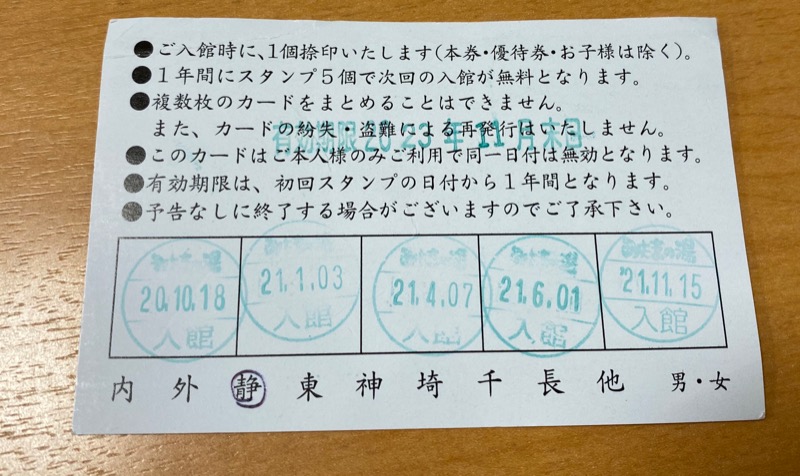 ●ご入館時に、1個捺印いたします(本券・優待券・お子様は除く)。
●1年間にスタンプ5個で次回の入館が無料となります。
●複数枚のカードをまとめることはできません。
また、カードの紛失・盗難による再発行はいたしません。
有効期限2023年11月末日
●このカードはご本人様のみご利用で同一日付は無効となります。
●有効期限は、初回スタンプの日付から1年間となります。
●予告なしに終了する場合がございますのでご了承下さい。
20.10.18 入館
21.1.03 入館
21.4.07 入館
21.6.01 入館
'21.11.15 入館
内 外 静 東 神 埼 千 長 他 男・女